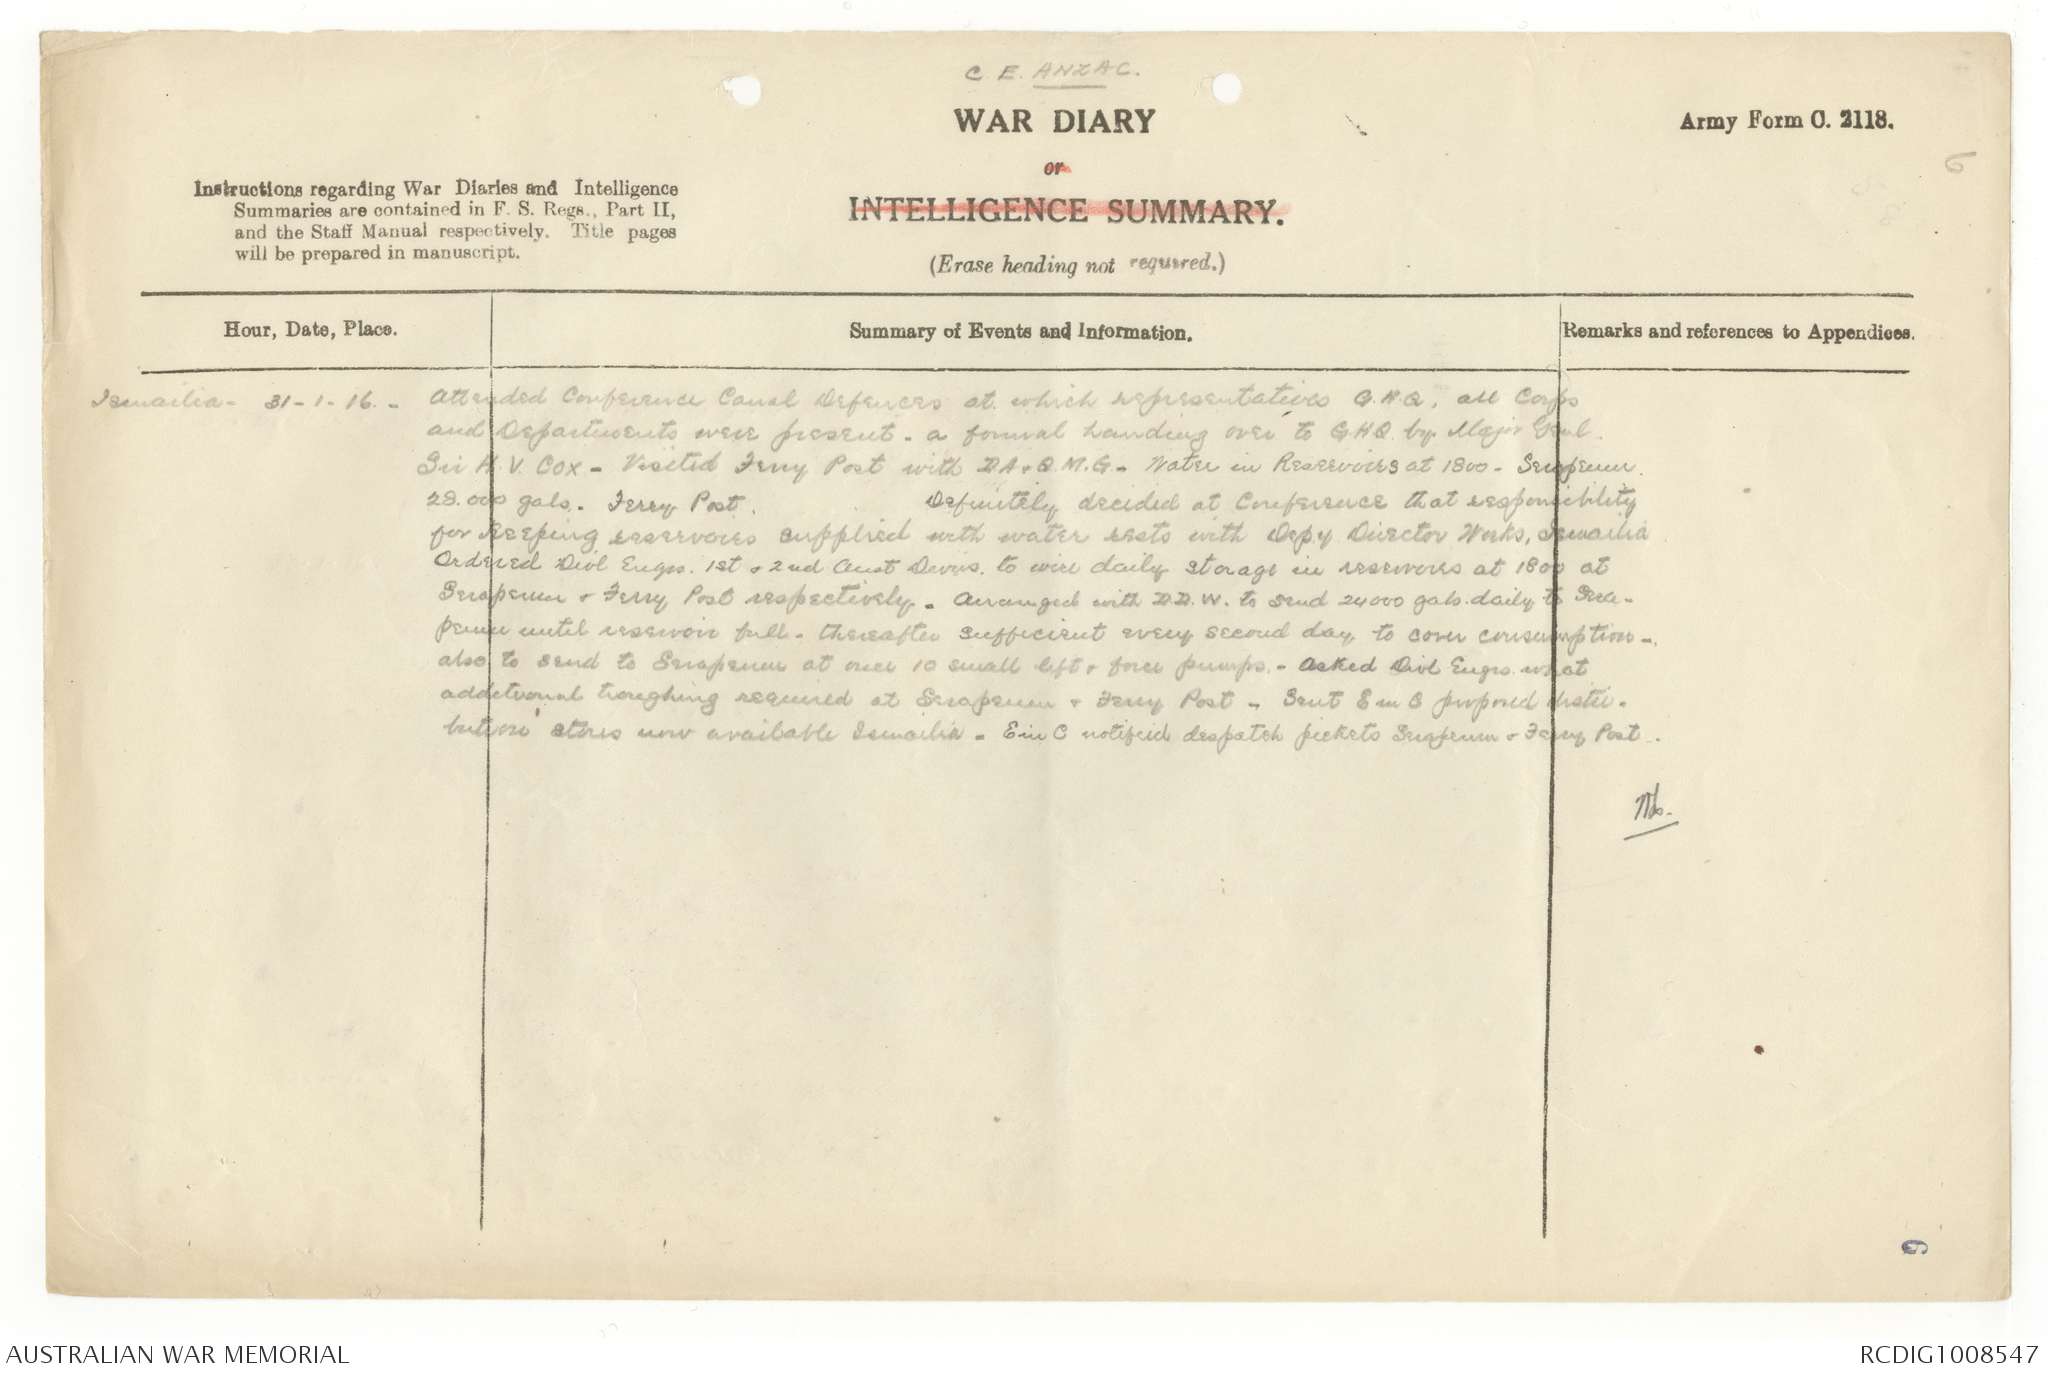 C. E. ANZAC.
WAR DIARY
or
INTELLIGENCE SUMMARY.
(Erase heading not required.)
Army Form C. 2118.
6
Instructions regarding War Diaries and Intelligence
Summaries are contained in F. S. Regs., Part II,
and the Staff Manual respectively. Title pages
will be prepared in manuscript.
Hour, Date, Place.
Summary of Events and Information.
Remarks and references to Appendices.
Ismailia - 31-1-16. -
Attended Conference Canal Defences at which representatives G.H.Q, all Corps
and Departments were present - a formal handing over to GHQ by Major Genl.
Sir H. V. Cox - Visited Ferry Post with DA & Q.M.G - Water in Reservoirs at 1800 - Serapeum
28.000 gals. Ferry Post. Definitely decided at Conference that responsibility
for keeping reservoirs supplied with water rests with Depy Director Works, Ismailia
Ordered Divl Engrs. 1st & 2nd Aust Divns. to wire daily storage in reservoirs at 1800 at
Serapeum & Ferry Post respectively. Arranged with D.D.W. to send 24000 gals. daily to Sera-
peum until reservoir full - thereafter sufficient every second day to cover consumption -
also to send to Serapeum at once 10 small lift & force pumps. - Asked Divl Engrs. what
additional troughing required at Serapeum & Ferry Post - Sent E in C proposed distri-
bution stores now available Ismailia - E in C notified despatch pickets Serapeum & Ferry Post.
9
AUSTRALIAN WAR MEMORIAL
RCDIG1008547